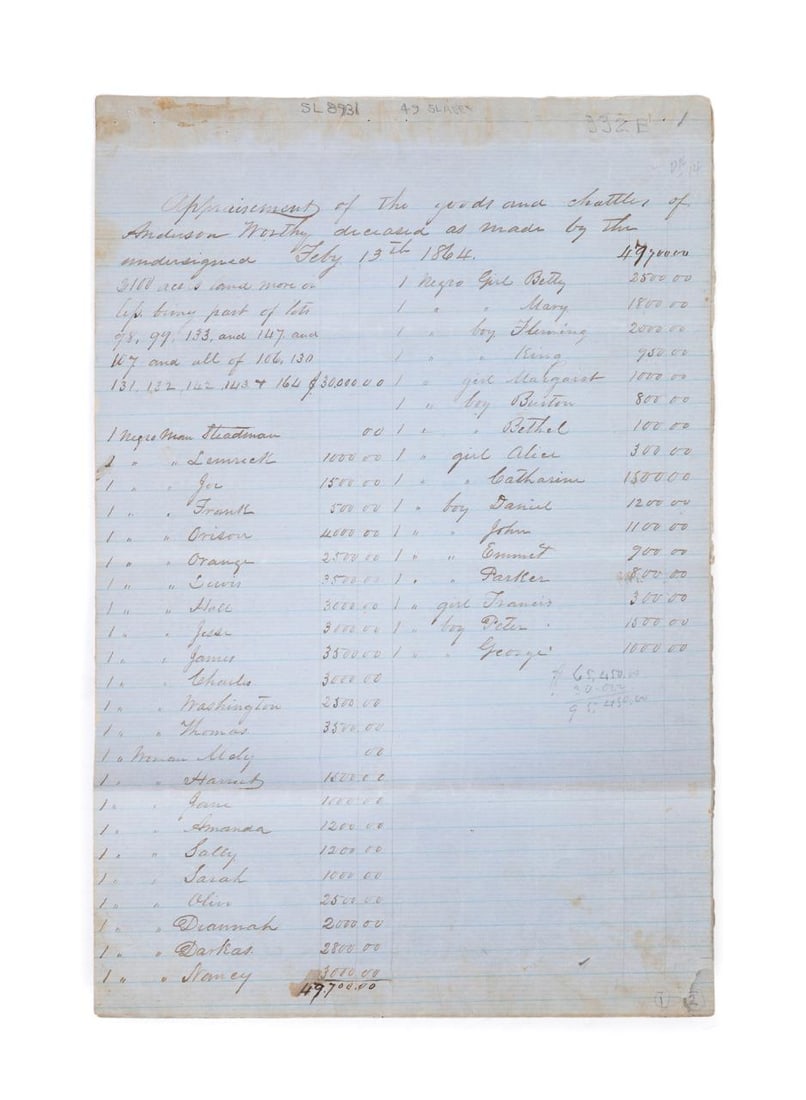 SL 8931 49 SLAVES
332 E 1
Appraisement of the goods and chattles of
Anderson Worthy deceased as made by the
undersigned Feby 13th 1864.
2100 acres land more or
less being part of lots
98, 99, 133, and 147 and
107 and all of 106, 130
131, 132, 142, 143 + 164 $30,000 00
1 Negro Man Steadman 00
1 " " Lemrick 1000 00
1 " " Joe 1500 00
1 " " Frank 500 00
1 " " Orison 4000 00
1 " " Orange 2500 00
1 " " Lewis 3500 00
1 " " Hall 3000 00
1 " " Jesse 3000 00
1 " " James 3500 00
1 " " Charles 3000 00
1 " " Washington 2500 00
1 " " Thomas 3500 00
1 " Woman Mely 00
1 " " Harriet 1500 00
1 " " Jane 1000 00
1 " " Amanda 1200 00
1 " " Sally 1200 00
1 " " Sarah 1000 00
1 " " Olive 2500 00
1 " " Diannah 2000 00
1 " " Darkas 2800 00
1 " " Nancy 3000 00
49,700.00
49700 00
1 Negro Girl Betty 2500 00
1 " " Mary 1800 00
1 " boy Fleming 2000 00
1 " " King 950 00
1 " girl Margaret 1000 00
1 " boy Burton 800 00
1 " " Bethel 100 00
1 " girl Alice 300 00
1 " " Catharine 1500 00
1 " boy Daniel 1200 00
1 " " John 1100 00
1 " " Emmet 900 00
1 " " Parker 800 00
1 " girl Francis 300 00
1 " boy Peter 1500 00
1 " " George 1000 00
$65,450.00
30.000
95,450.00